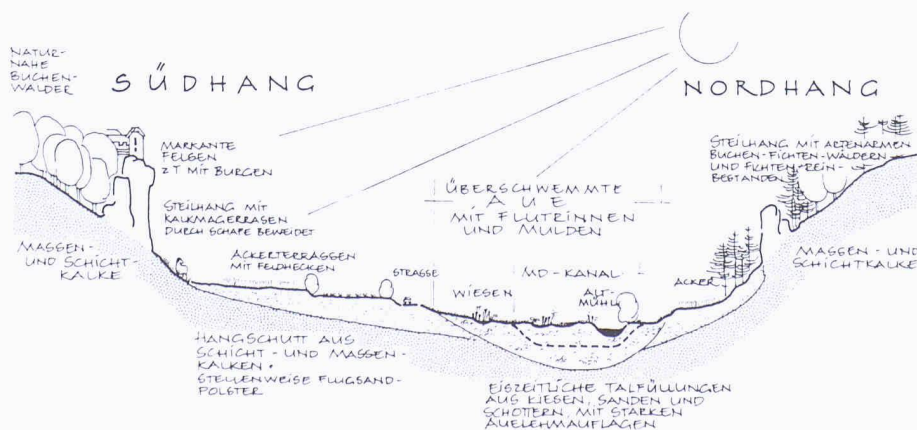 NATUR-
NAHE
BUCHEN-
WÄLDER
SÜDHANG
NORDHANG
MARKANTE
FELSEN
Z T MIT BURGEN
STEILHANG MIT
KALKMAGERRASEN
DURCH SCHAFE BEWEIDET
ÜBERSCHWEMMTE
AUE
MIT FLUTRINNEN
UND MULDEN
STEILHANG MIT ARTENARMEN
BUCHEN-FICHTEN-WÄLDERN
UND FICHTEN-REIN-
BESTÄNDEN
MASSEN-
UND SCHICHT-
KALKE
ACKERTERRASSEN
MIT FELDHECKEN
STRASSE
WIESEN
MD-KANAL
ALT-
MÜHL
ACKER
MASSEN- UND
SCHICHTKALKE
HANGSCHUTT AUS
SCHICHT- UND MASSEN-
KALKEN.
STELLENWEISE FLUGSAND-
POLSTER
EISZEITLICHE TALFÜLLUNGEN
AUS KIESEN, SANDEN UND
SCHOTTERN, MIT STARKEN
AUELEHMAUFLAGEN